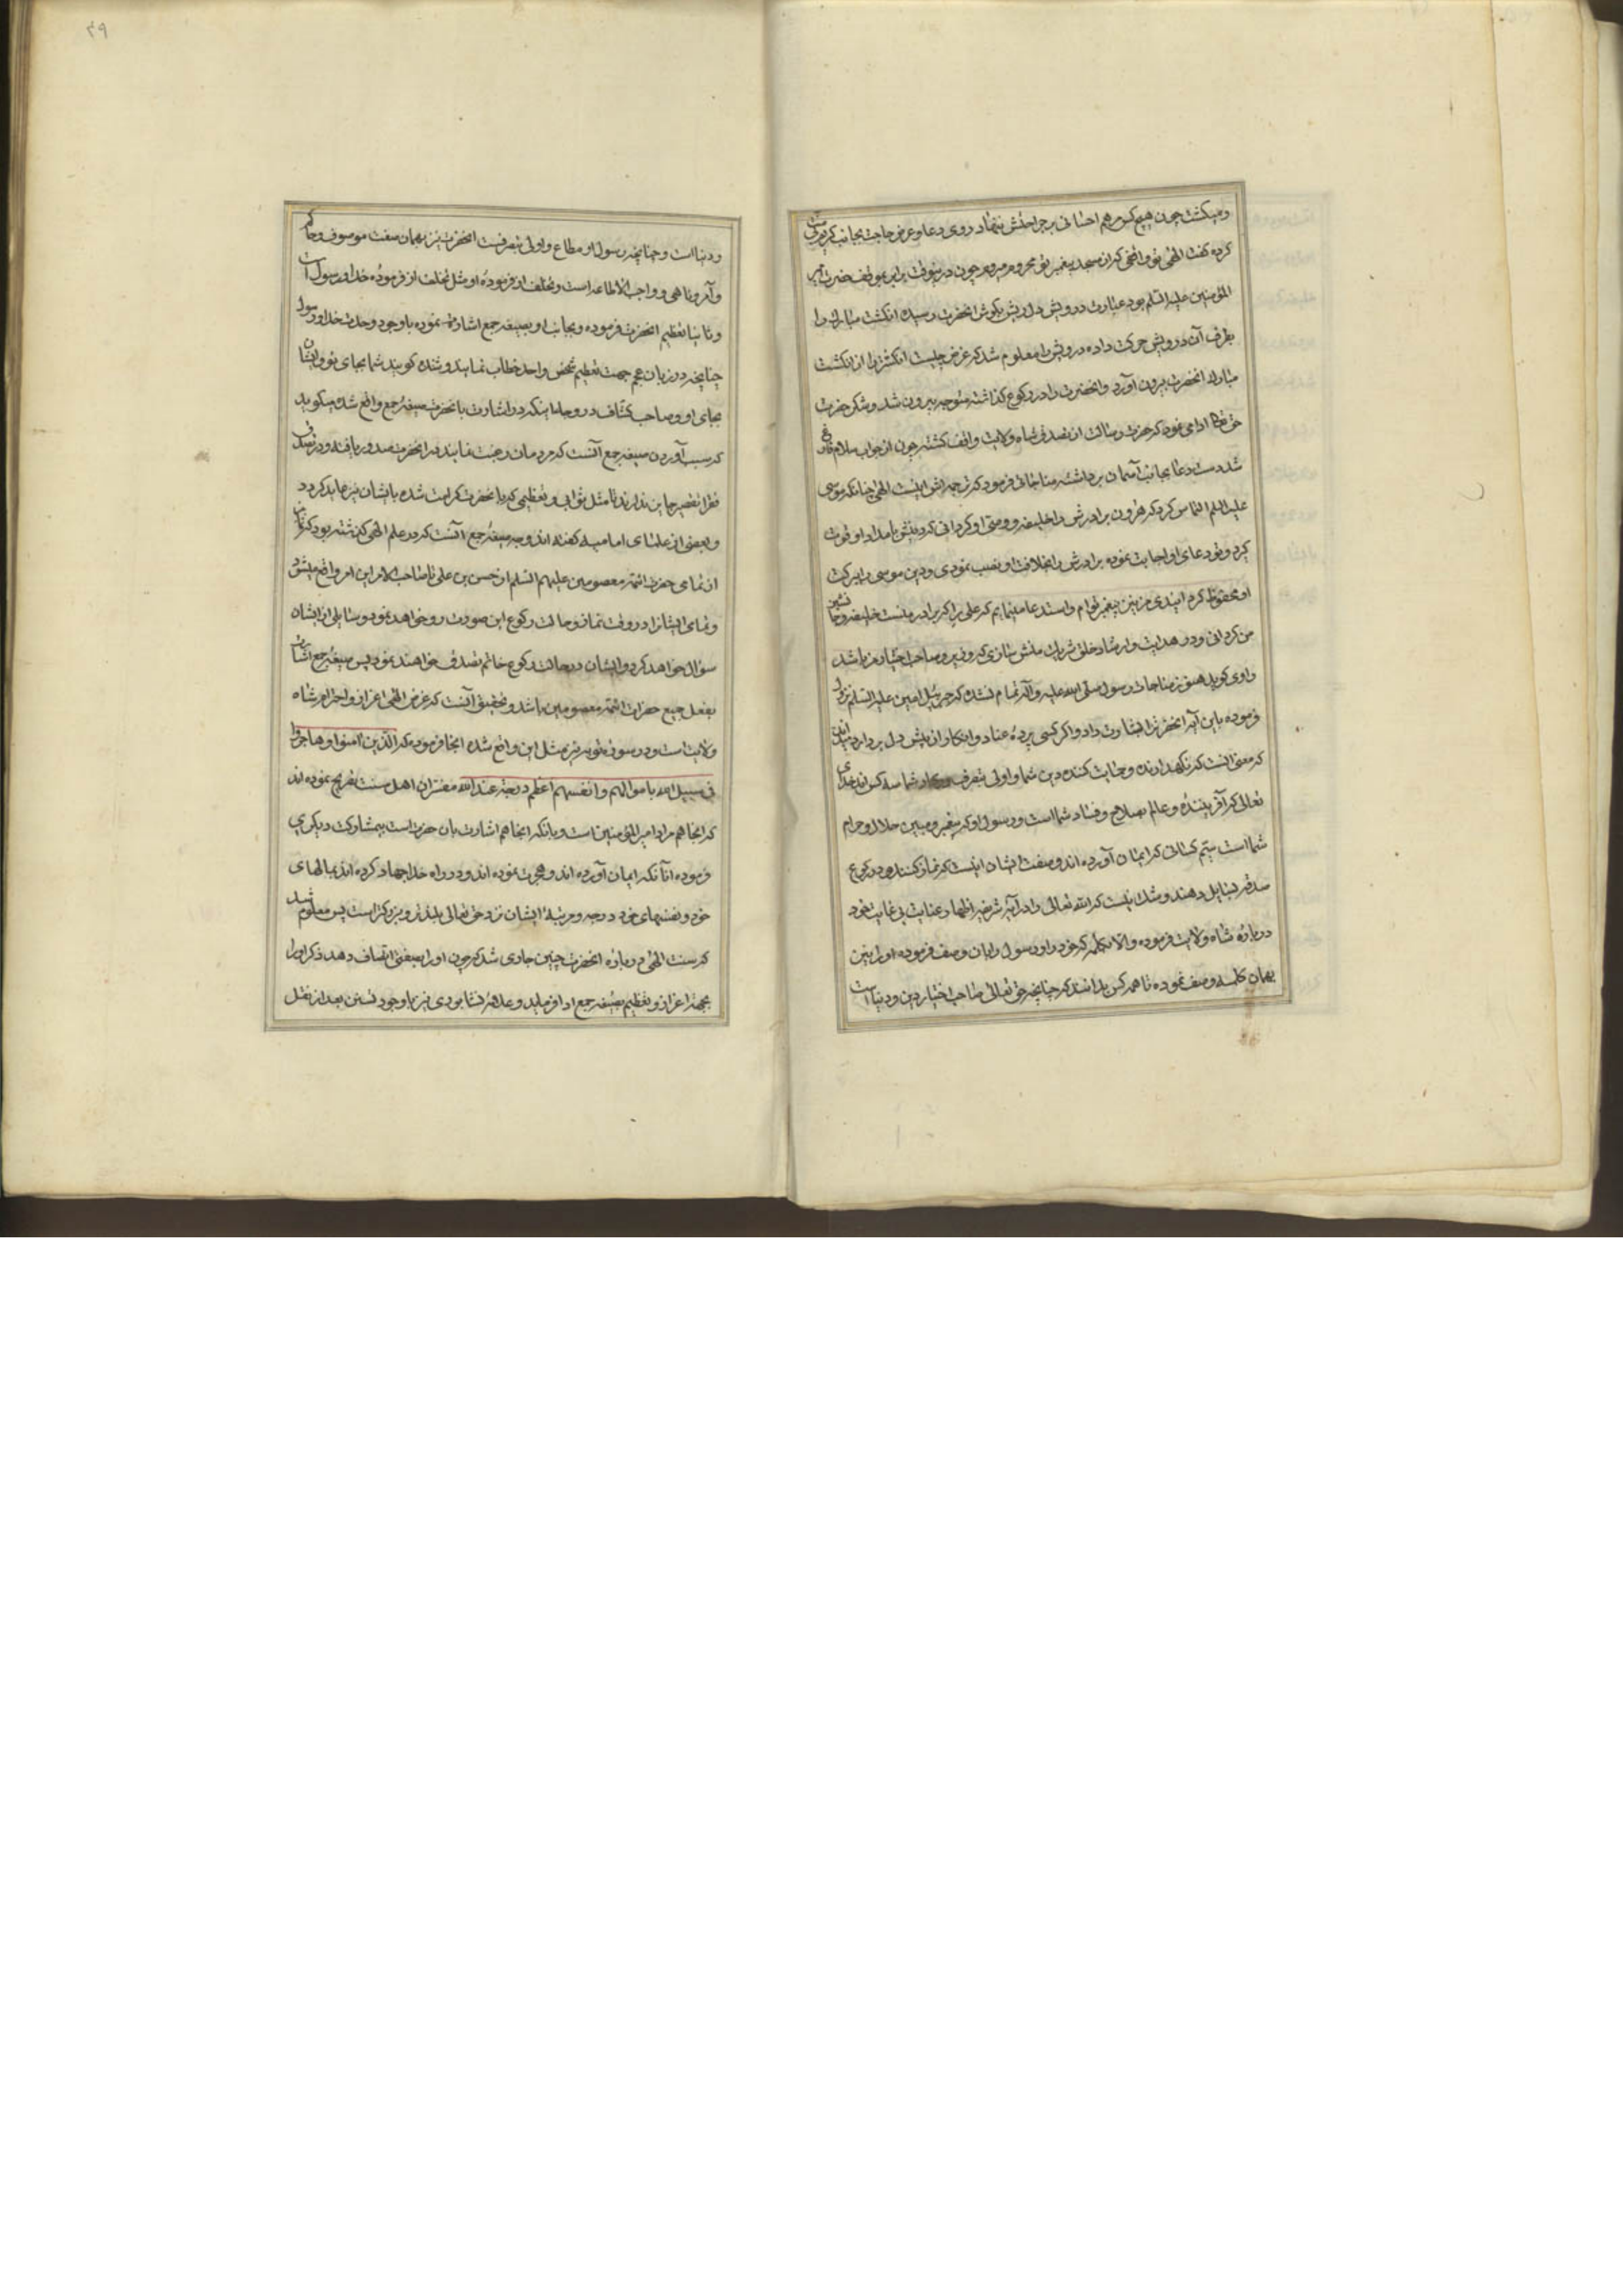 ومیکشت چون هیچکس مرهم احسانی بر جراحتش ننهاد روی دعا و عرض حاجت بجانب کریم
کرده کفت الهی تو واقفی که از مسجد پیغمبر تو محروم میروم چون درینوقت برابر موقف حضرت امیر
المؤمنین علیه السلم بود عبارت درویش دلریش بکوش انحضرت رسیده انکشت مبارک را
بطرف آن درویش حرکت داده درویش را معلوم شد که غرض چیست انکشتر را از انکشت
مبارک انحضرت بیرون آورد و انحضرت را در رکوع کذاشته متوجه بیرون شد و شکر حضرت
حق تعالی ادا می نمود که حضرت رسالت از تصدق شاه ولایت واقف کشته چون از جواب سلام فارغ
شد دست دعا بجانب آسمان برداشته مناجاتی فرمود که ترجمه اش اینست الهی چنانکه موسی
علیه السلم التماس کرد که هرون برادرش را خلیفه و وصی او کردانی که دینش بامداد او قوت
کیرد و تو دعای او اجابت نموده برادرش را بخلافت او نصب نمودی و دین موسی را ببرکت
او محفوظ کردانیدی من نیز پیغمبر توام و استدعا مینمایم که علی را که برادر منست خلیفه و جانشین
من کردانی و در هدایت و ارشاد خلق شریک منش سازی که وزیر و صاحب اختیار من باشد
راوی کوید هنوز مناجات رسول صلی الله علیه و آله تمام نشده که جبرئیل امین علیه السلم نزول
فرموده باین آیه انحضرت را بشارت داد و اکر کسی پردهٔ عناد و انکار از پیش دل بردارد
که معنی اینست که نکهدارنده و حمایت کننده دین شما و اولی بتصرف در شما سه کس اند خدای
تعالی که آفریننده و عالم بصلاح و فساد شما است و رسول او که پیغمبر و مبین حلال و حرام
شما است سیم کسانی که ایمان آورده اند و صفت ایشان اینست که نماز کنند و در رکوع
صدقه بسایل دهند و شک نیست که الله تعالی در این آیه شریفه اظهار عنایت بی غایت خود
درباره شاه ولایت فرموده و الا بکلمه که خود را و رسول را بان وصف فرموده او را نیز
بهمان کلمه وصف نموده تا همه کس بدانند که چنانچه حق تعالی صاحب اختیار دین و دنیا است
ودنیا است و چنانچه رسول او مطاع و اولی بتصرفست انحضرت نیز بهمان صفت موصوف و حاکم
و آمر و ناهی و واجب الاطاعه است و تخلف از فرمودهٔ او مثل تخلف از فرمودهٔ خدا و رسول است
و ثانیا تعظیم انحضرت فرموده و بجانب او بصیغه جمع اشارت نموده با وجود وحدت خدا و رسول
چنانچه در زبان عجم جهت تعظیم شخص واحد خطاب نمایند و شنده کویند شما بجای تو و ایشان
بجای او و صاحب کشاف در وجه اینکه در اشارت بانحضرت صیغه جمع واقع شده میکوید
که سبب آوردن صیغه جمع آنست که مردمان رغبت نمایند
فقرا تقصیر جایز ندارند تا مثل ثوابی و تعظیمی که بانحضرت کرامت شده بایشان نیز عاید کردد
و بعضی از علمای امامیه کفته اند وجه صیغه جمع آنست که در علم الهی کذشته بود که
از تمامی حضرات ائمه معصومین علیهم السلم از حسن بن علی تا صاحب الامر این امر واقع میشود
و تمامی ایشانرا در وقت نماز و حالت رکوع این صورت رو خواهد نمود و سایلی از ایشان
سؤال خواهد کرد و ایشان در حالت رکوع خاتم تصدق خواهند نمود پس صیغه جمع اشارت
بفعل جمیع حضرات ائمه معصومین باشد و تحقیق آنست که غرض الهی اعزاز و احترام شاه
ولایت است و در سوره توبه نیز بمثل این واقع شده انجا فرموده که الذین امنوا و هاجروا
فی سبیل الله باموالهم وانفسهم اعظم درجة عند الله مفسران اهل سنت تصریح نموده اند
که انجا هم مراد امیر المؤمنین است و بانکه انجا هم اشارت بان حضرت است بیمشارکت دیکری
فرموده آنانکه ایمان آورده اند و هجرت نموده اند و در راه خدا جهاد کرده اند بمالهای
خود و نفسهای خود درجه و مرتبهٔ ایشان نزد حق تعالی بلندتر و بزرکتر است پس معلوم شد
که سنت الهی درباره انحضرت چنین جاری شد که چون او را بصفتی اتصاف دهد ذکر او را
بجهة اعزاز و تعظیم بصیغه جمع ادا فرماید و علامهٔ نیشابوری نیز با وجود تسنن بعد از نقل